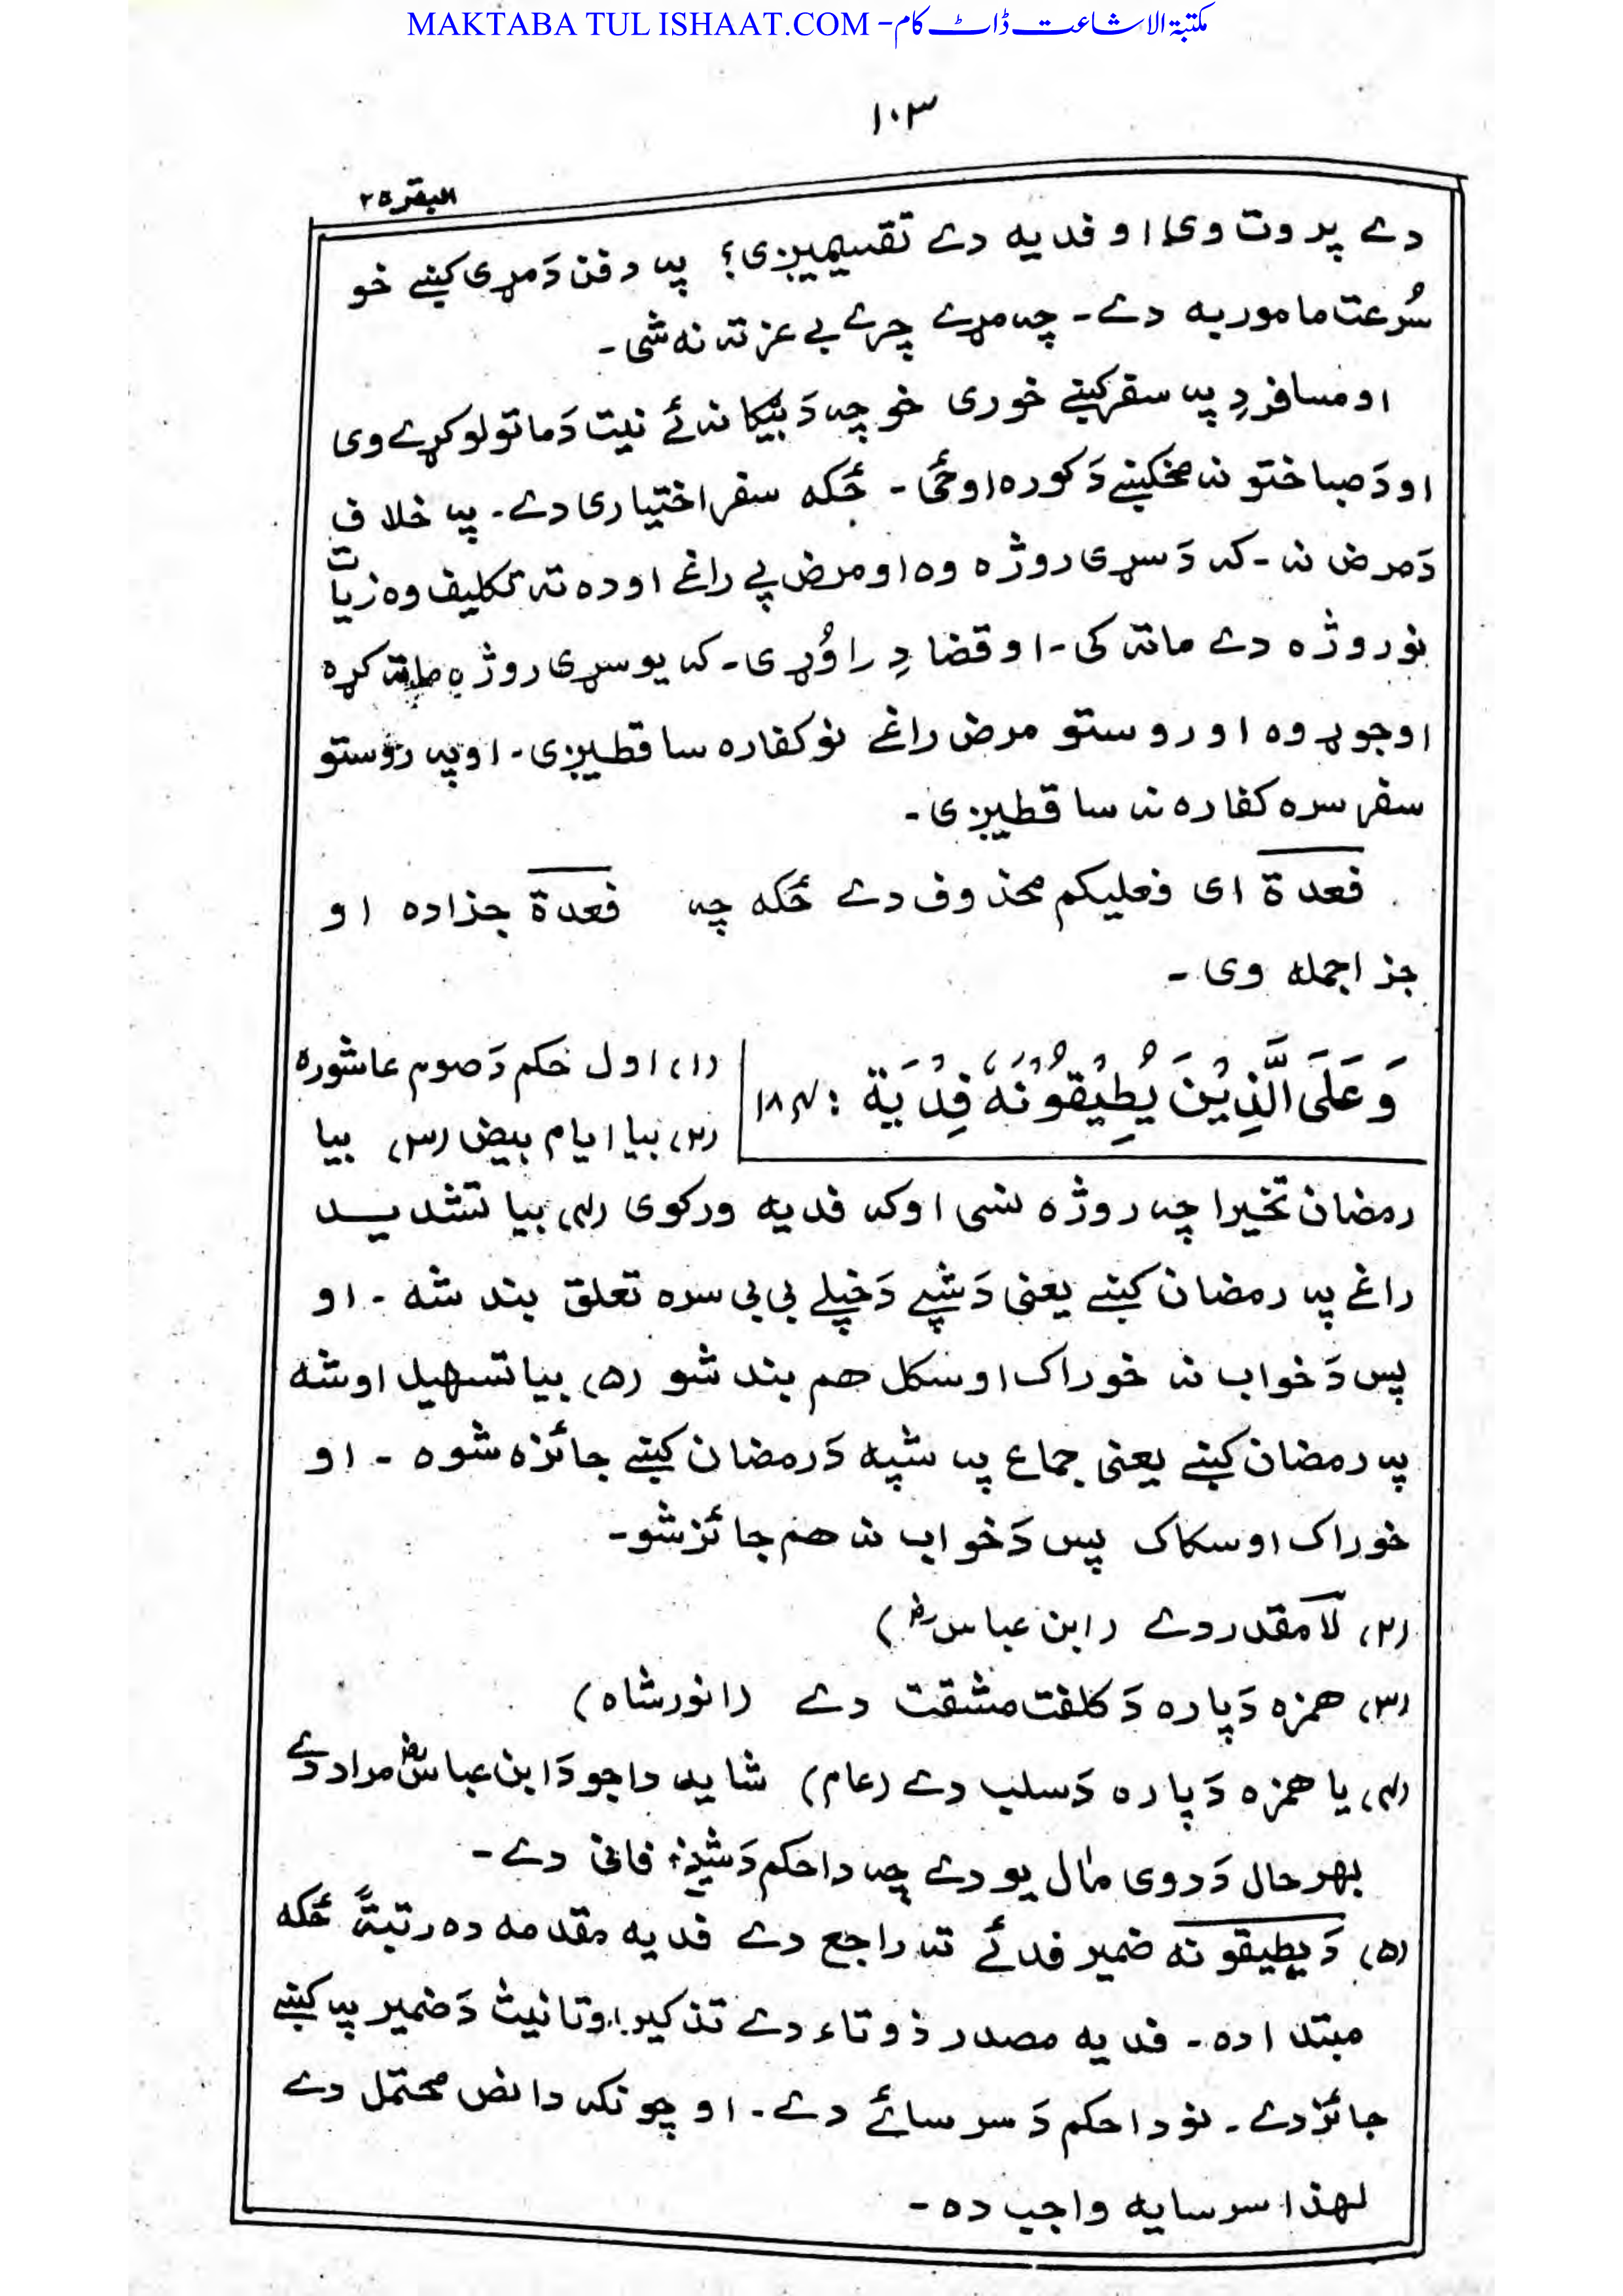 MAKTABA TUL ISHAAT.COM - مکتبۃ الاشاعت ڈاٹ کام
۱۰۳
البقرة ۲
دے پروت وی او فدیه دے تقسیمیږی؟ په دفن دَ مړی کښے خو
سُرعت مامور به دے۔ چه مړے چرے بے عزته نه شی۔
او مسافر دِ په سفر کښے خوری خو چه دَ بیګا نه ئے نیت دَ ماتولو کړے وی
او دَ صبا ختو نه مخکښے دَ کوره اوځی۔ ځکه سفر اختیاری دے۔ په خلاف
دَ مرض نه۔ که دَ سړی روژه وه او مرض پے راغے او ده ته تکلیف وه زیات
نو روژه دے ماته کی۔ او قضا دِ راوُړی۔ که یو سړی روژه ماته کړه
او جوړ وه او روستو مرض راغے نو کفاره ساقطیږی۔ او په روستو
سفر سره کفاره نه ساقطیږی۔
فعدة ای فعلیکم محذوف دے ځکه چه فعدة جزا ده او
جزا جمله وی۔
وَعَلَى الَّذِيْنَ يُطِيْقُوْنَهٗ فِدْيَة : ۱۸۴
(۱) اول حکم دَ صوم عاشوره
(۲) بیا ایام بیض (۳) بیا
رمضان تخیرا چه روژه نسی او که فدیه ورکوی (۴) بیا تشدید
راغے په رمضان کښے یعنی دَ شپے دَ خپلے بی بی سره تعلق بند شه۔ او
پس دَ خواب نه خوراک او سکل هم بند شو (۵) بیا تسهیل اوشه
په رمضان کښے یعنی جماع په شپه دَ رمضان کښے جائزه شوه۔ او
خوراک او سکاک پس دَ خواب نه هم جائز شو۔
(۲) لَا مقدر دے (ابن عباس رض)
(۳) همزه دَپاره دَ کلفت مشقت دے (انورشاه)
(۴) یا همزه دَپاره دَ سلب دے (عام) شاید دا جو دَ ابن عباس رض مراد دے
بهر حال دَ دوی مآل یو دے چه دا حکم دَ شیخ فانی دے۔
(۵) دَ یطیقونه ضمیر فدئے ته راجع دے فدیه مقدمه ده رتبةً ځکه
مبتدا ده۔ فدیه مصدر ذو تاء دے تذکیر او تانیث دَ ضمیر په کښے
جائز دے۔ نو دا حکم دَ سرسائے دے۔ او چونکه دا نص محتمل دے
لهذا سرسایه واجب ده۔